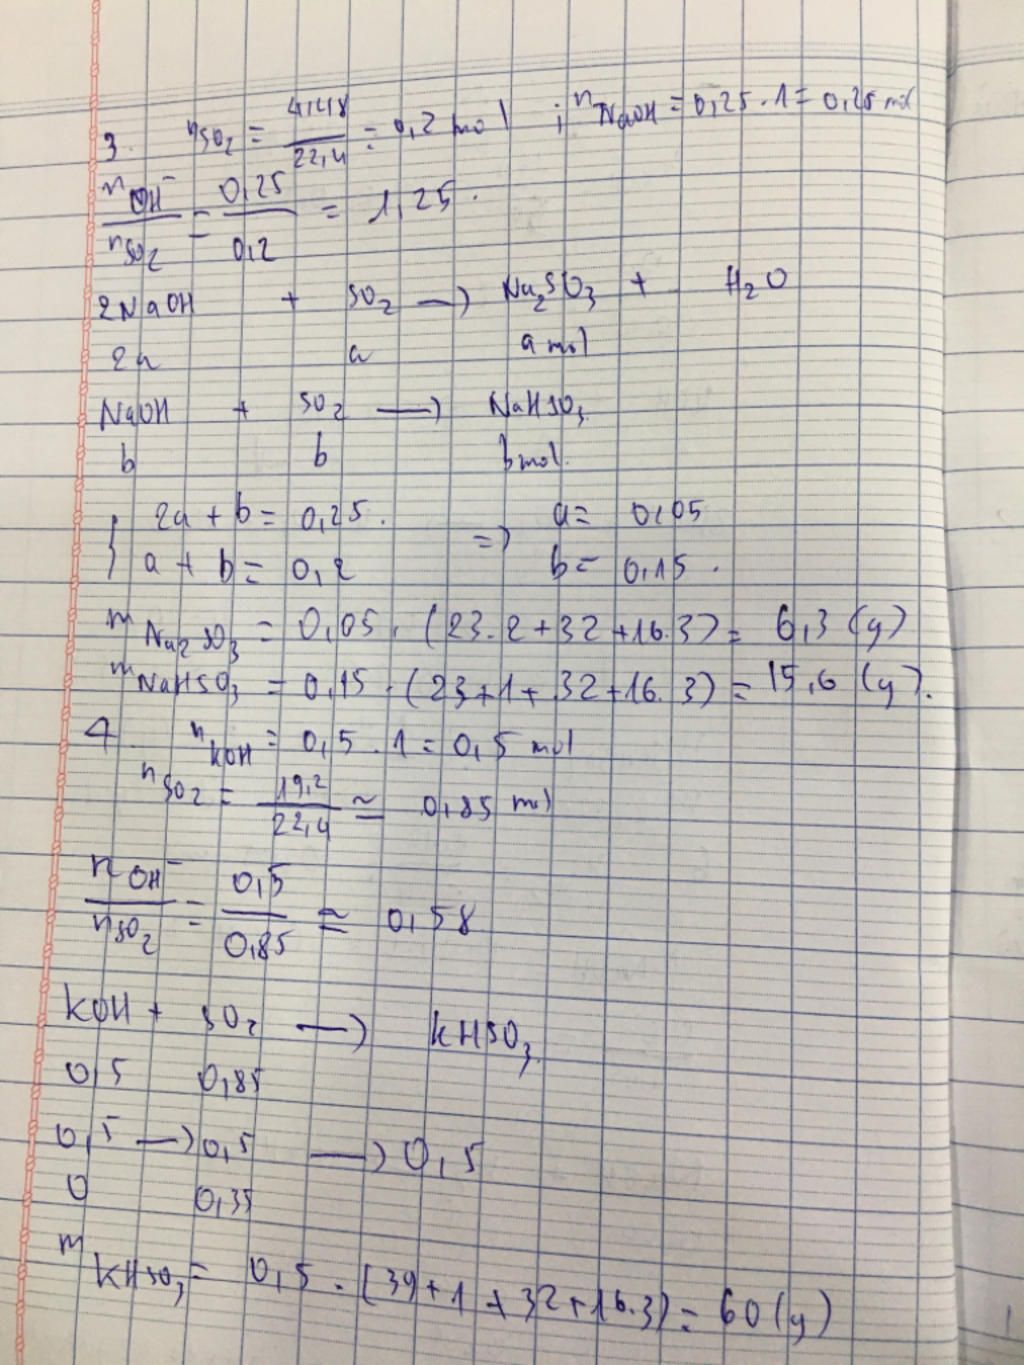 3. nSO2 = 4,48/22,4 = 0,2 mol ; nNaOH = 0,25 . 1 = 0,25 mol
nOH⁻/nSO2 = 0,25/0,2 = 1,25.
2NaOH + SO2 → Na2SO3 + H2O
2a a a mol
NaOH + SO2 → NaHSO3
b b b mol.
{ 2a + b = 0,25. ⇒ a = 0,05
a + b = 0,2 b = 0,15 .
mNa2SO3 = 0,05 . (23.2+32+16.3) = 6,3 (g)
mNaHSO3 = 0,15 . (23+1+32+16.3) = 15,6 (g).
4 nKOH = 0,5 . 1 = 0,5 mol
nSO2 = 19,2/22,4 ≃ 0,85 mol
nOH⁻/nSO2 = 0,5/0,85 ≃ 0,58
KOH + SO2 → KHSO3
0,5 0,85
0,5 → 0,5 → 0,5
0 0,35
mKHSO3 = 0,5 . (39+1+32+16.3) = 60 (g)